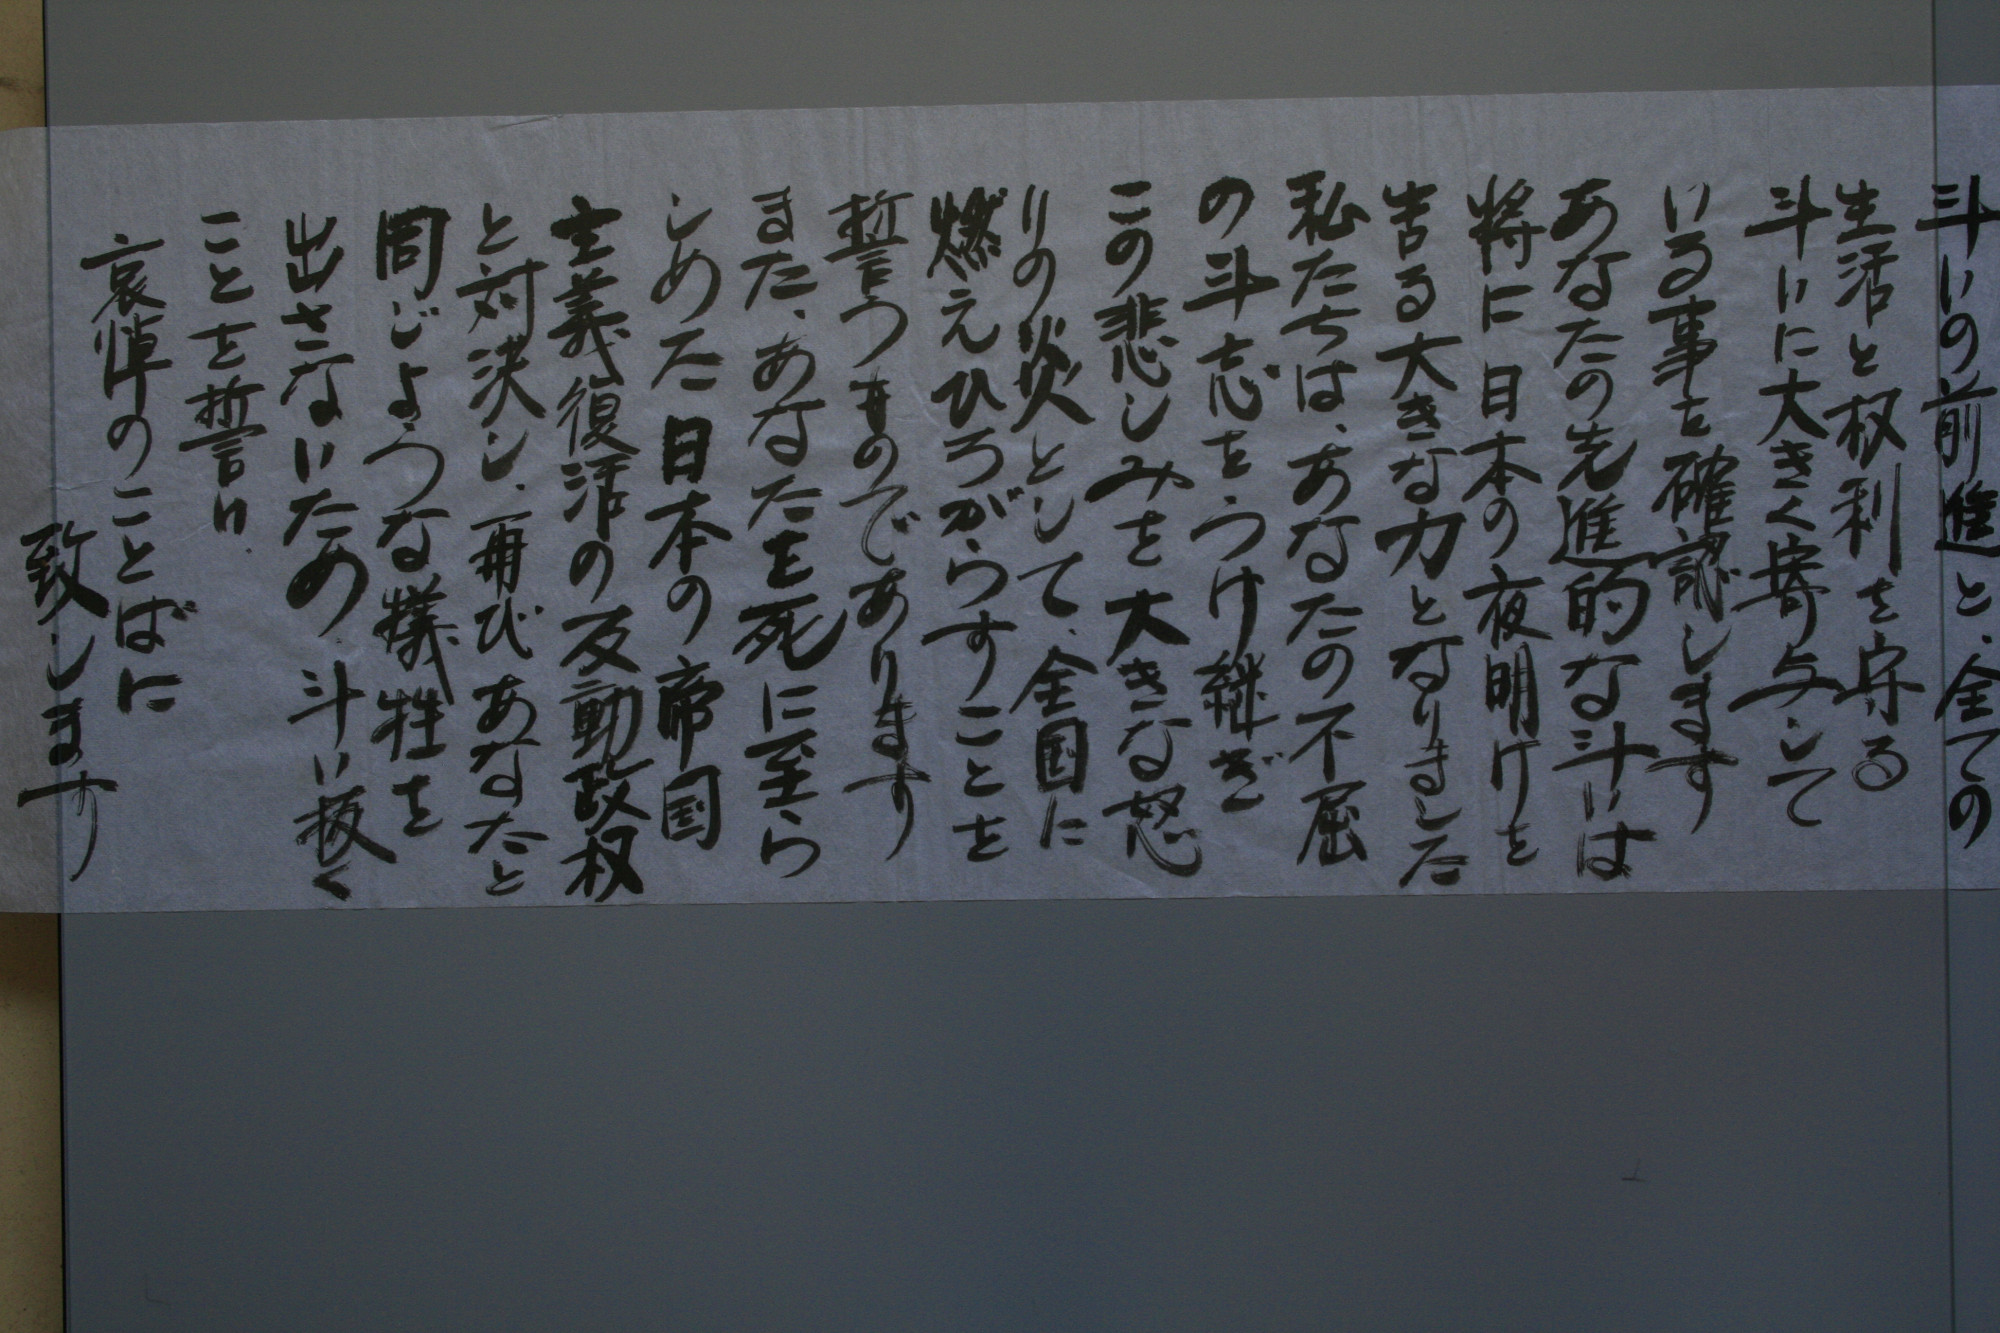 斗いの前進と、全ての
生活と权利を守る
斗いに大きく寄与して
いる事を確認します
あなたの先進的な斗いは
将に日本の夜明けを
告る大きな力となりました
私たちは、あなたの不屈
の斗志をうけ継ぎ
この悲しみを大きな怒
りの炎として、全国に
燃えひろがらすことを
誓うものであります
また、あなたを死に至ら
しめた日本の帝国
主義復活の反動政权
と対決し、再びあなたと
同じような犠牲を
出さないため、斗い抜く
ことを誓い、
哀悼のことばに
致します